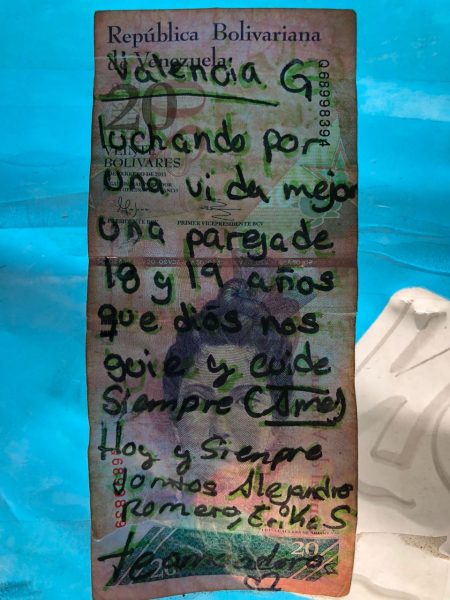 República Bolivariana
de Venezuela
Valencia G
20
luchando por
VEINTE
BOLÍVARES
una vida mejor
PRESIDENTE BCV PRIMER VICEPRESIDENTE BCV
una pareja de
18 y 19 años
que diós nos
guie y cuide
Siempre (Amo)
Hoy y Siempre
Jomtos Alejandro
Romero, Erika S
20
Q68998394